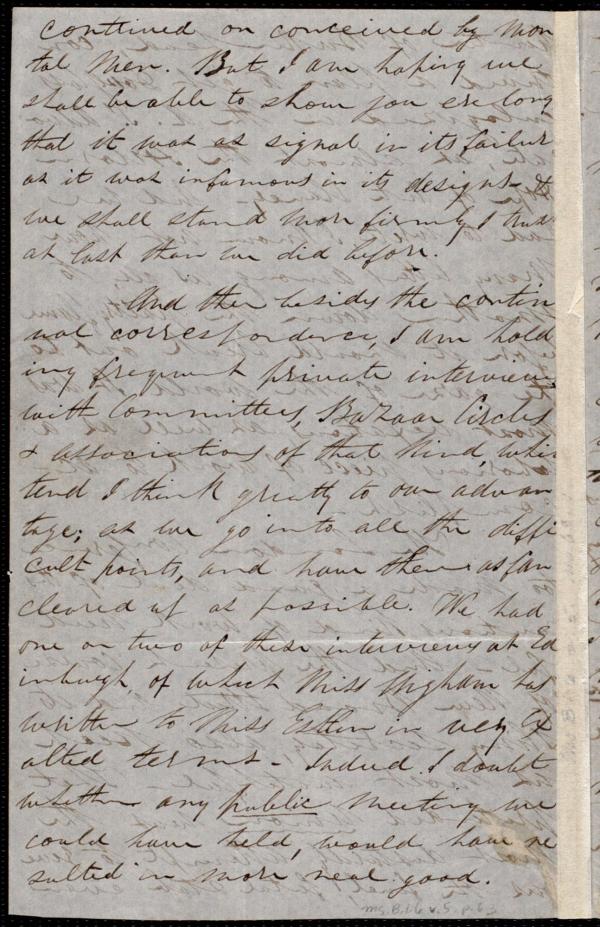 continued or conceived by mor
tal men. But I am hoping we
shall be able to show you ere long
that it was as signal in its failure
as it was infamous in its designs - &
we shall stand more firmly I trust
at last than we did before.
And then besides the contin
ual correspondence, I am hold
ing frequent private interviews
with Committees, Bazaar Circles
& associations of that kind, whi
tend I think greatly to our advan
tage; as we go into all the diffi
cult points, and have them as far
cleared up as possible. We had
one or two of these interviews at Ed
inburgh, of which Miss Wigham has
written to Miss Estlin in very Ex
alted terms - Indeed I doubt
whether any public meeting we
could have held, would have re
sulted in more real good.
Ms.B.1.6 v.5, p.63